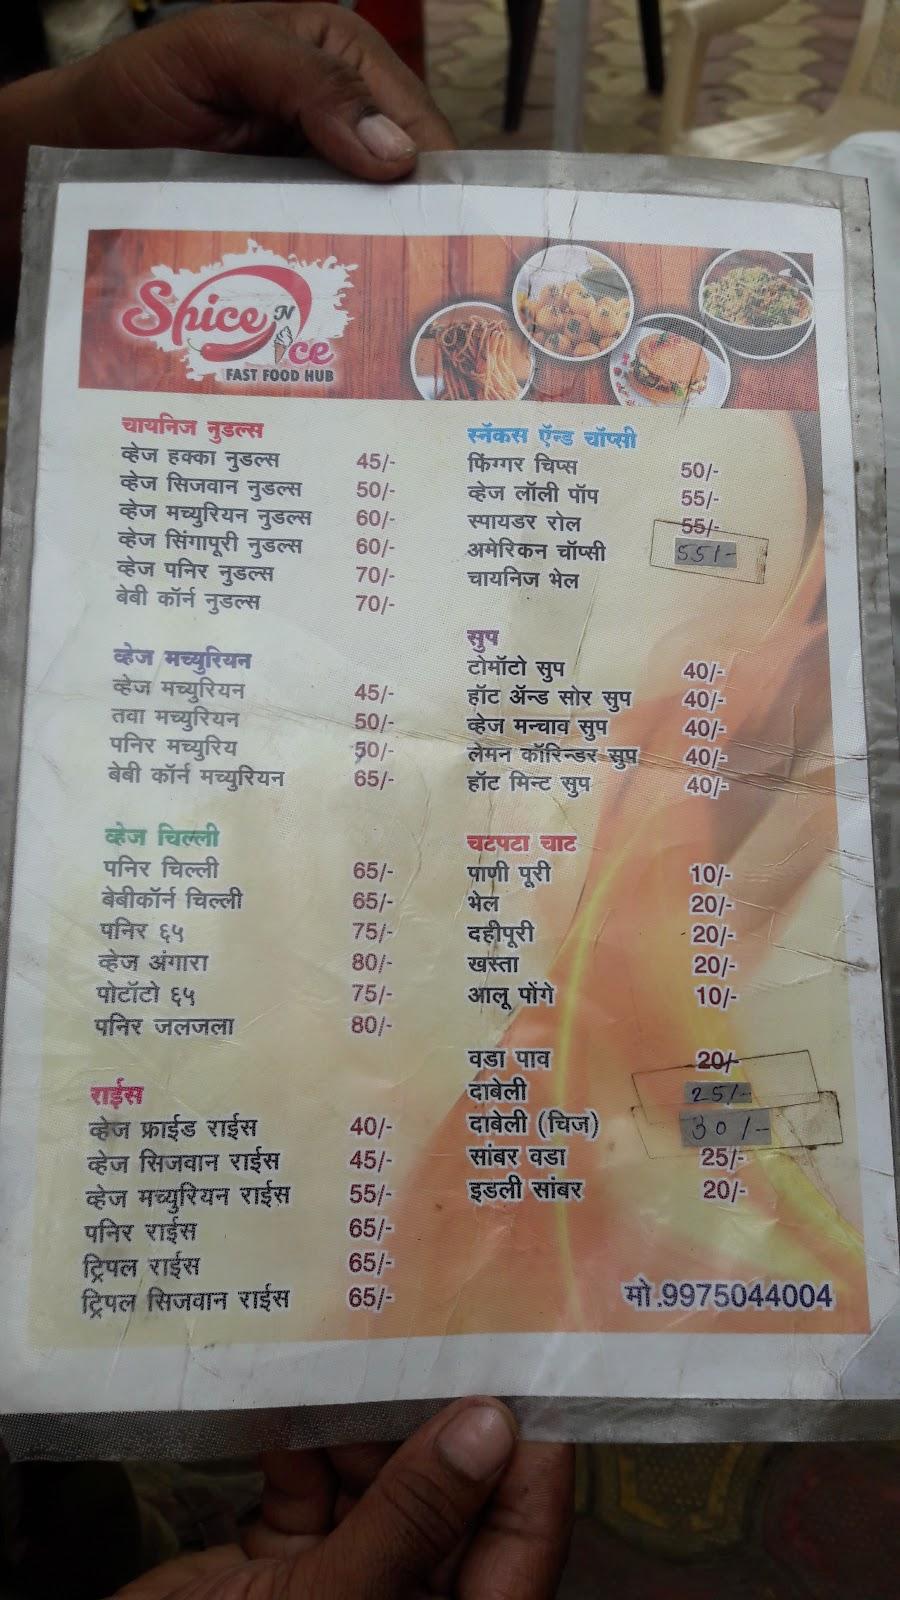 Spice N Ice
FAST FOOD HUB
चायनिज नुडल्स
व्हेज हक्का नुडल्स 45/-
व्हेज सिजवान नुडल्स 50/-
व्हेज मच्युरियन नुडल्स 60/-
व्हेज सिंगापूरी नुडल्स 60/-
व्हेज पनिर नुडल्स 70/-
बेबी कॉर्न नुडल्स 70/-
व्हेज मच्युरियन
व्हेज मच्युरियन 45/-
तवा मच्युरियन 50/-
पनिर मच्युरिय 50/-
बेबी कॉर्न मच्युरियन 65/-
व्हेज चिल्ली
पनिर चिल्ली 65/-
बेबीकॉर्न चिल्ली 65/-
पनिर ६५ 75/-
व्हेज अंगारा 80/-
पोटॉटो ६५ 75/-
पनिर जलजला 80/-
राईस
व्हेज फ्राईड राईस 40/-
व्हेज सिजवान राईस 45/-
व्हेज मच्युरियन राईस 55/-
पनिर राईस 65/-
ट्रिपल राईस 65/-
ट्रिपल सिजवान राईस 65/-
स्नॅकस ऍन्ड चॉप्सी
फिंग्गर चिप्स 50/-
व्हेज लॉली पॉप 55/-
स्पायडर रोल 55/-
अमेरिकन चॉप्सी 55/-
चायनिज भेल
सुप
टोमॉटो सुप 40/-
हॉट ॲन्ड सोर सुप 40/-
व्हेज मन्चाव सुप 40/-
लेमन कॉरिन्डर सुप 40/-
हॉट मिन्ट सुप 40/-
चटपटा चाट
पाणी पूरी 10/-
भेल 20/-
दहीपूरी 20/-
खस्ता 20/-
आलू पोंगे 10/-
वडा पाव 20/-
दाबेली 25/-
दाबेली (चिज) 30/-
सांबर वडा 25/-
इडली सांबर 20/-
मो.9975044004